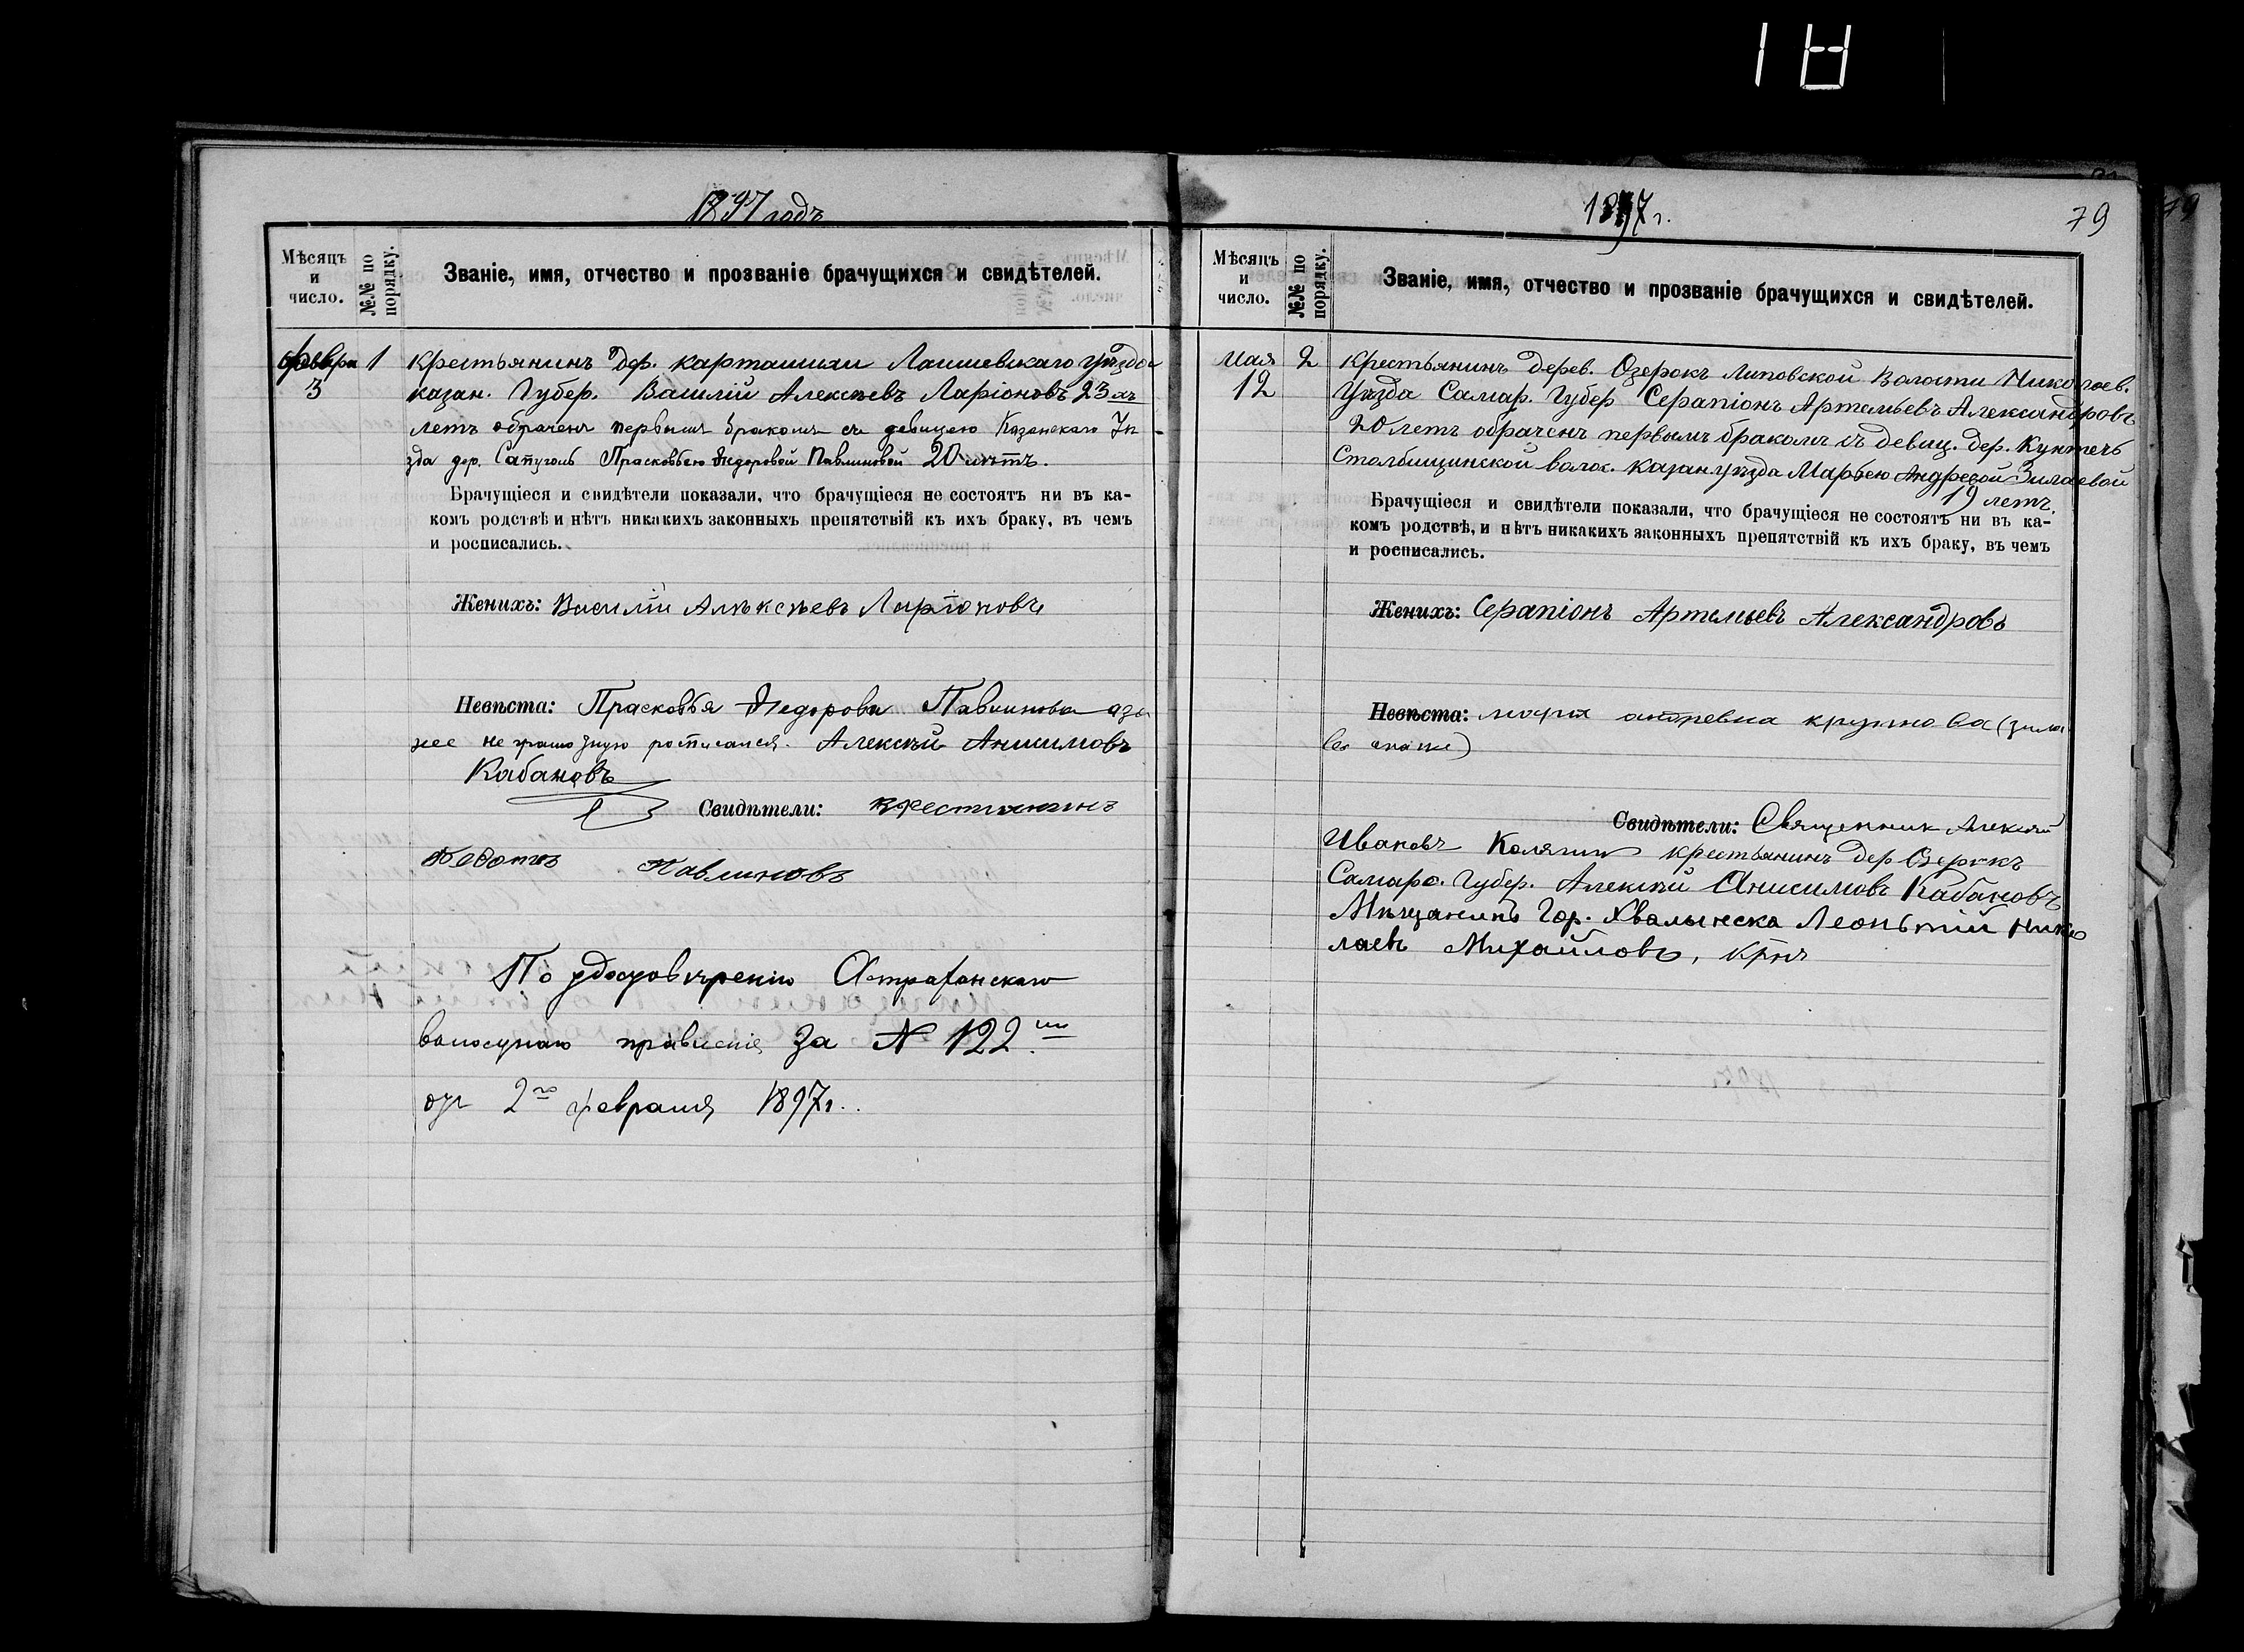 18
1897 годъ
Мѣсяцъ и число.
№№ по порядку.
Званіе, имя, отчество и прозваніе брачущихся и свидѣтелей.
Февра 3
1
Крестьянинъ дер. карташихи Лаишевскаго уѣзда
казан. Губер. Василій Алексѣевъ Ларіоновъ 23хъ
летъ обраченъ первымъ бракомъ съ девицею Казанскаго Уѣ
зда дер. Сапуголь Прасковьею Ѳедоровой Павлиновой 20 лѣтъ.
Брачущіеся и свидѣтели показали, что брачущіеся не состоятъ ни въ ка-
комъ родствѣ и нѣтъ никакихъ законныхъ препятствій къ ихъ браку, въ чемъ
и росписались.
Женихъ: Василіи Алѣксѣевъ Ларіоновъ
Невѣста: Прасковья Ѳедорова Павлинова а за
нее не грамотную росписался. Алексѣй Анисимовъ
Кабановъ
Свидѣтели: крестианинъ
Ѳедотъ Павлиновъ
По удостовѣренію Астраханскаго
волостнаго правленія за № 122мъ
отъ 2го февраля 1897г.
1897г.
79
Мѣсяцъ и число.
№№ по порядку.
Званіе, имя, отчество и прозваніе брачущихся и свидѣтелей.
Мая 12
2
Крестьянинъ дерев. Озерокъ Липовской Волости Николаев.
Уѣзда Самар. Губер Серапіонъ Артемьевъ Александровъ
20 летъ обраченъ первымъ бракомъ съ девиц. дер. Кунтечь
Столбищинской волос. казан. уѣзда Марьею Андреевой Зилаевой
19 летъ.
Брачущіеся и свидѣтели показали, что брачущіеся не состоятъ ни въ ка-
комъ родствѣ, и нѣтъ никакихъ законныхъ препятствій къ ихъ браку, въ чемъ
и росписались.
Женихъ: Серапіонъ Артемьевъ Александровъ
Невѣста: мария антревна
Свидѣтели: Священникъ Алексѣй
Ивановъ Калягин крестьянинъ дер Озерокъ
Самарс. Губер. Алексѣй Анисимовъ Кабановъ
Мѣщанинъ Гор. Хвалынска Леоньтий Нико
лаевъ Михайловъ, крѣнъ